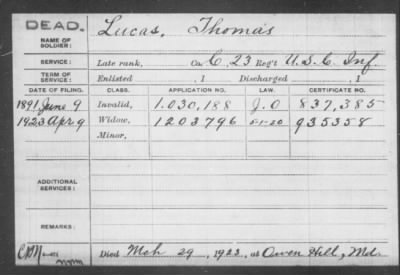 DEAD.
NAME OF SOLDIER: Lucas, Thomas
SERVICE: Late rank, Co. C, 23 Reg't U.S.C. Inf.
TERM OF SERVICE: Enlisted , 1 Discharged , 1
DATE OF FILING. CLASS. APPLICATION NO. LAW. CERTIFICATE NO.
1891 June 9 Invalid, 1.030,188 J.O 837,385
1923 Apr. 9 Widow, 1203796 5-1-20 935358
Minor,
ADDITIONAL SERVICES:
REMARKS:
Died Mch 29, 1923, at Owen Hill, Md.